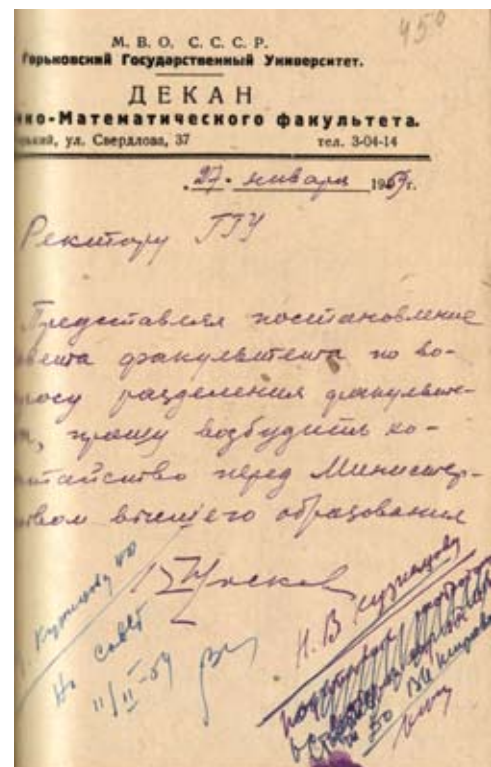 450
М. В. О. С. С. С. Р.
Горьковский Государственный Университет.
ДЕКАН
ко-Математического факультета.
ький, ул. Свердлова, 37 тел. 3-04-14
"27" января 1959г.
Ректору ГГУ
Представляя постановление
совета факультета по во-
просу разделения факульте-
та, прошу возбудить хо-
датайство перед Министер-
ством высшего образования
Кузнецову НВ
На совет
11/II-59
Н. В Кузнецову